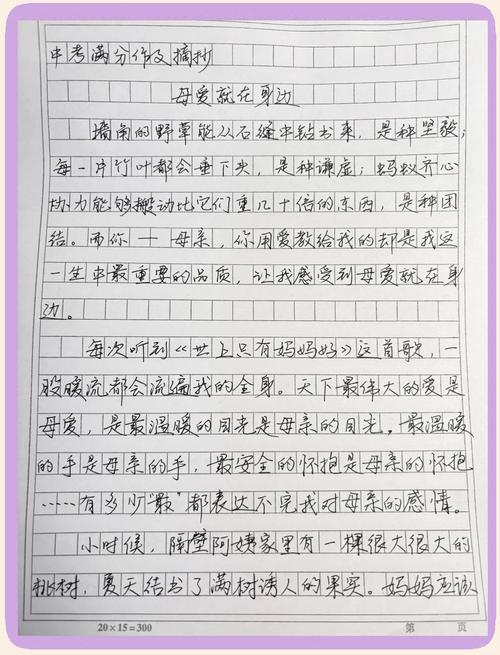 中考满分作文摘抄
母爱就在身边
墙角的野草能从石缝中钻出来，是种坚毅；
每一片竹叶都会垂下头，是种谦虚；蚂蚁齐心
协力能够搬动比它们重几十倍的东西，是种团
结。而你——母亲，你用爱教给我的却是我这
一生中最重要的品质，让我感受到母爱就在身
边。
每次听到《世上只有妈妈好》这首歌，一
股暖流都会流遍我的全身。天下最伟大的爱是
母爱，是最温暖的目光是母亲的目光。最温暖
的手是母亲的手，最安全的怀抱是母亲的怀抱
……有多少“最”都表达不完我对母亲的感情。
小时候，隔壁阿姨家里有一棵很大很大的
桃树，夏天结出了满树诱人的果实。妈妈应该
20×15=300
第 页